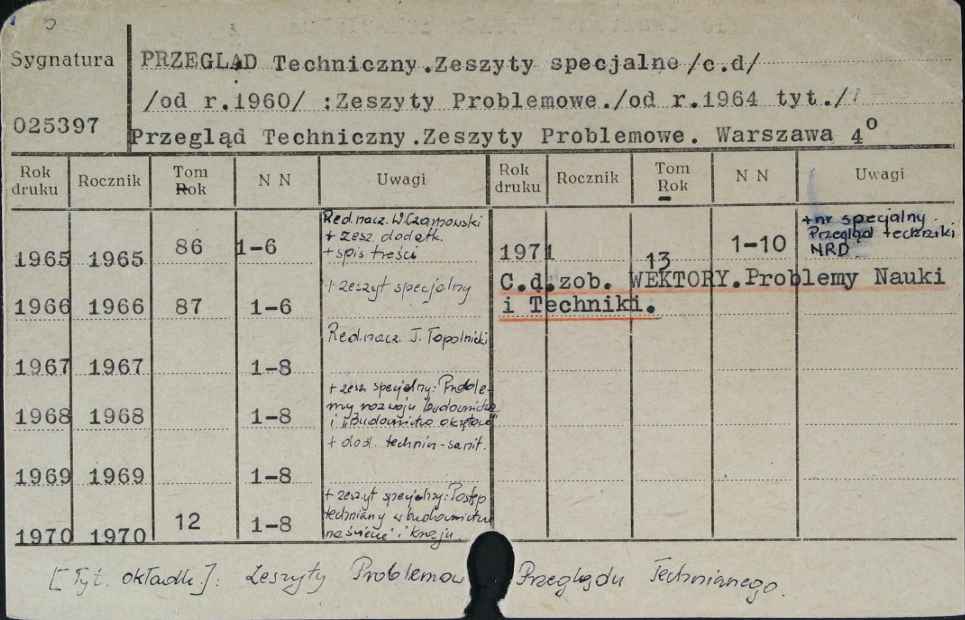 Sygnatura
PRZEGLĄD Techniczny.Zeszyty specjalne/c.d/
/od r.1960/ :Zeszyty Problemowe./od r.1964 tyt./
025397
Przegląd Techniczny.Zeszyty Problemowe. Warszawa 4º
Rok druku Rocznik Tom Rok N N Uwagi Rok druku Rocznik Tom Rok N N Uwagi
1965 1965 86 1-6
Red.nacz. W.Czarnowski
+ zesz. dodatk.
+ spis treści
1966 1966 87 1-6 + zeszyt specjalny
Red.nacz. J. Topolnicki
1967 1967 1-8
1968 1968 1-8
+ zesz specjalny: Proble-
my rozwoju budownictwa
i "Budownictwo okrętowe"
+ dod. techniп-sanit.
1969 1969 1-8
1970 1970 12 1-8
+ zeszyt specjalny: Postęp
techniczny w budownictwie
na świecie i kraju
1971 13 1-10
+ nr specjalny
Przegląd techniki
NRD
C.d.zob. WEKTORY.Problemy Nauki
i Techniki.
[Tyt. okładk.]: Zeszyty Problemow Przeglądu Technicznego.